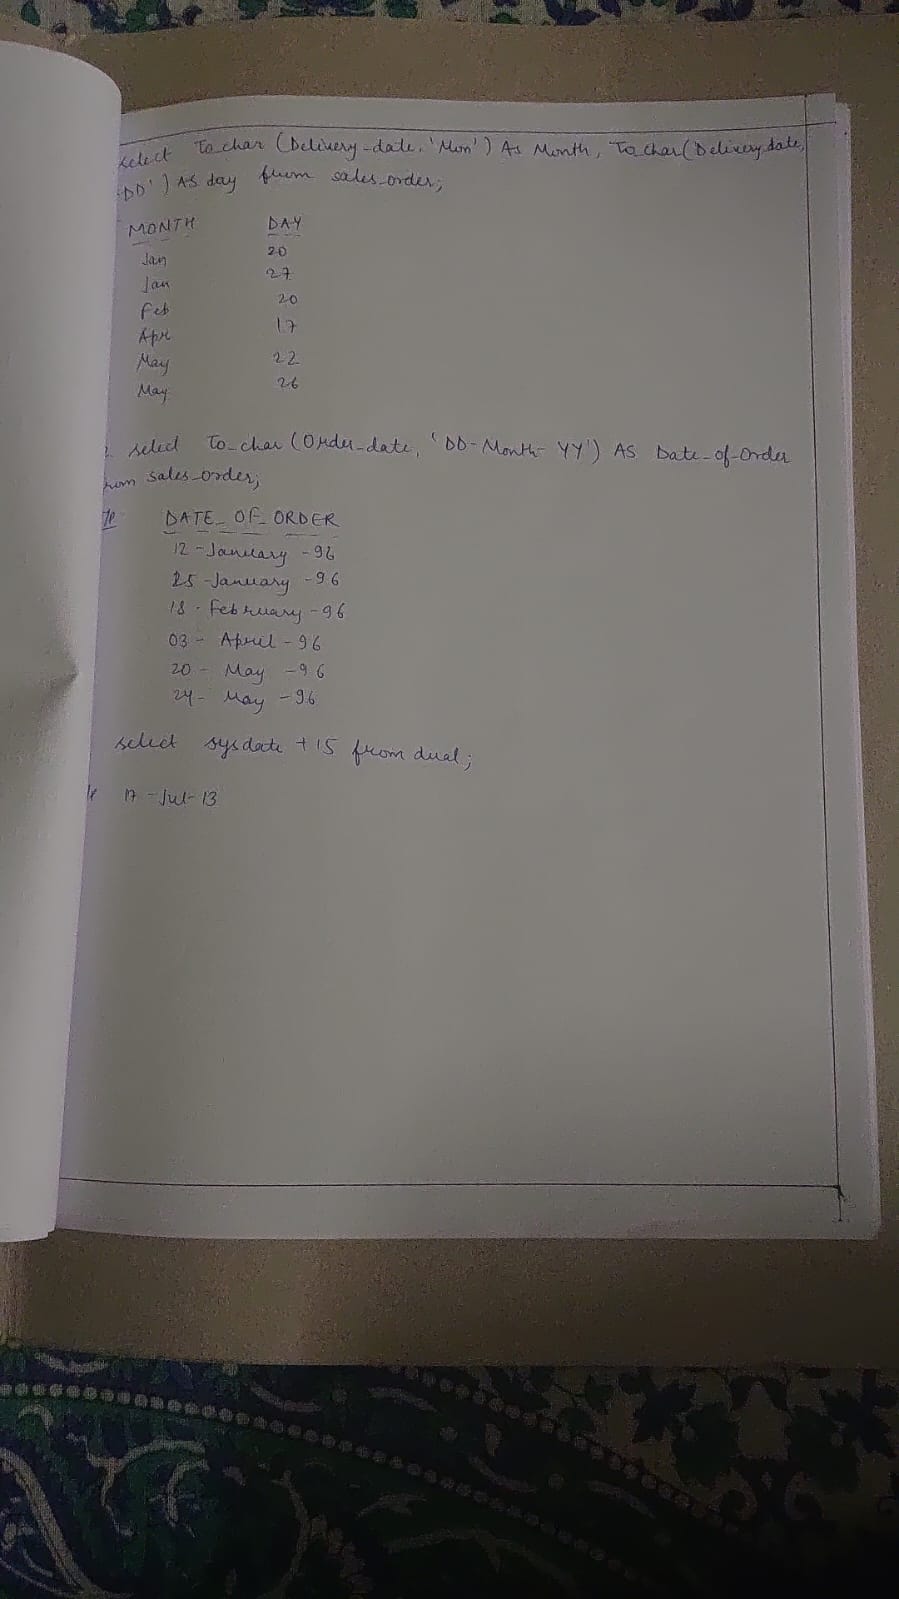 select To_char (Delivery-date, 'Mon') As Month, To_char (Delivery date,
'DD') AS day from sales-order;
MONTH DAY
Jan 20
Jan 27
Feb 20
Apr 17
May 22
May 26
select To_char (Order_date, 'DD-Month-YY') AS Date-of-Order
from sales-order;
DATE_OF_ORDER
12-January-96
25-January-96
18-February-96
03-April-96
20-May-96
24-May-96
select sysdate +15 from dual;
17-Jul-13